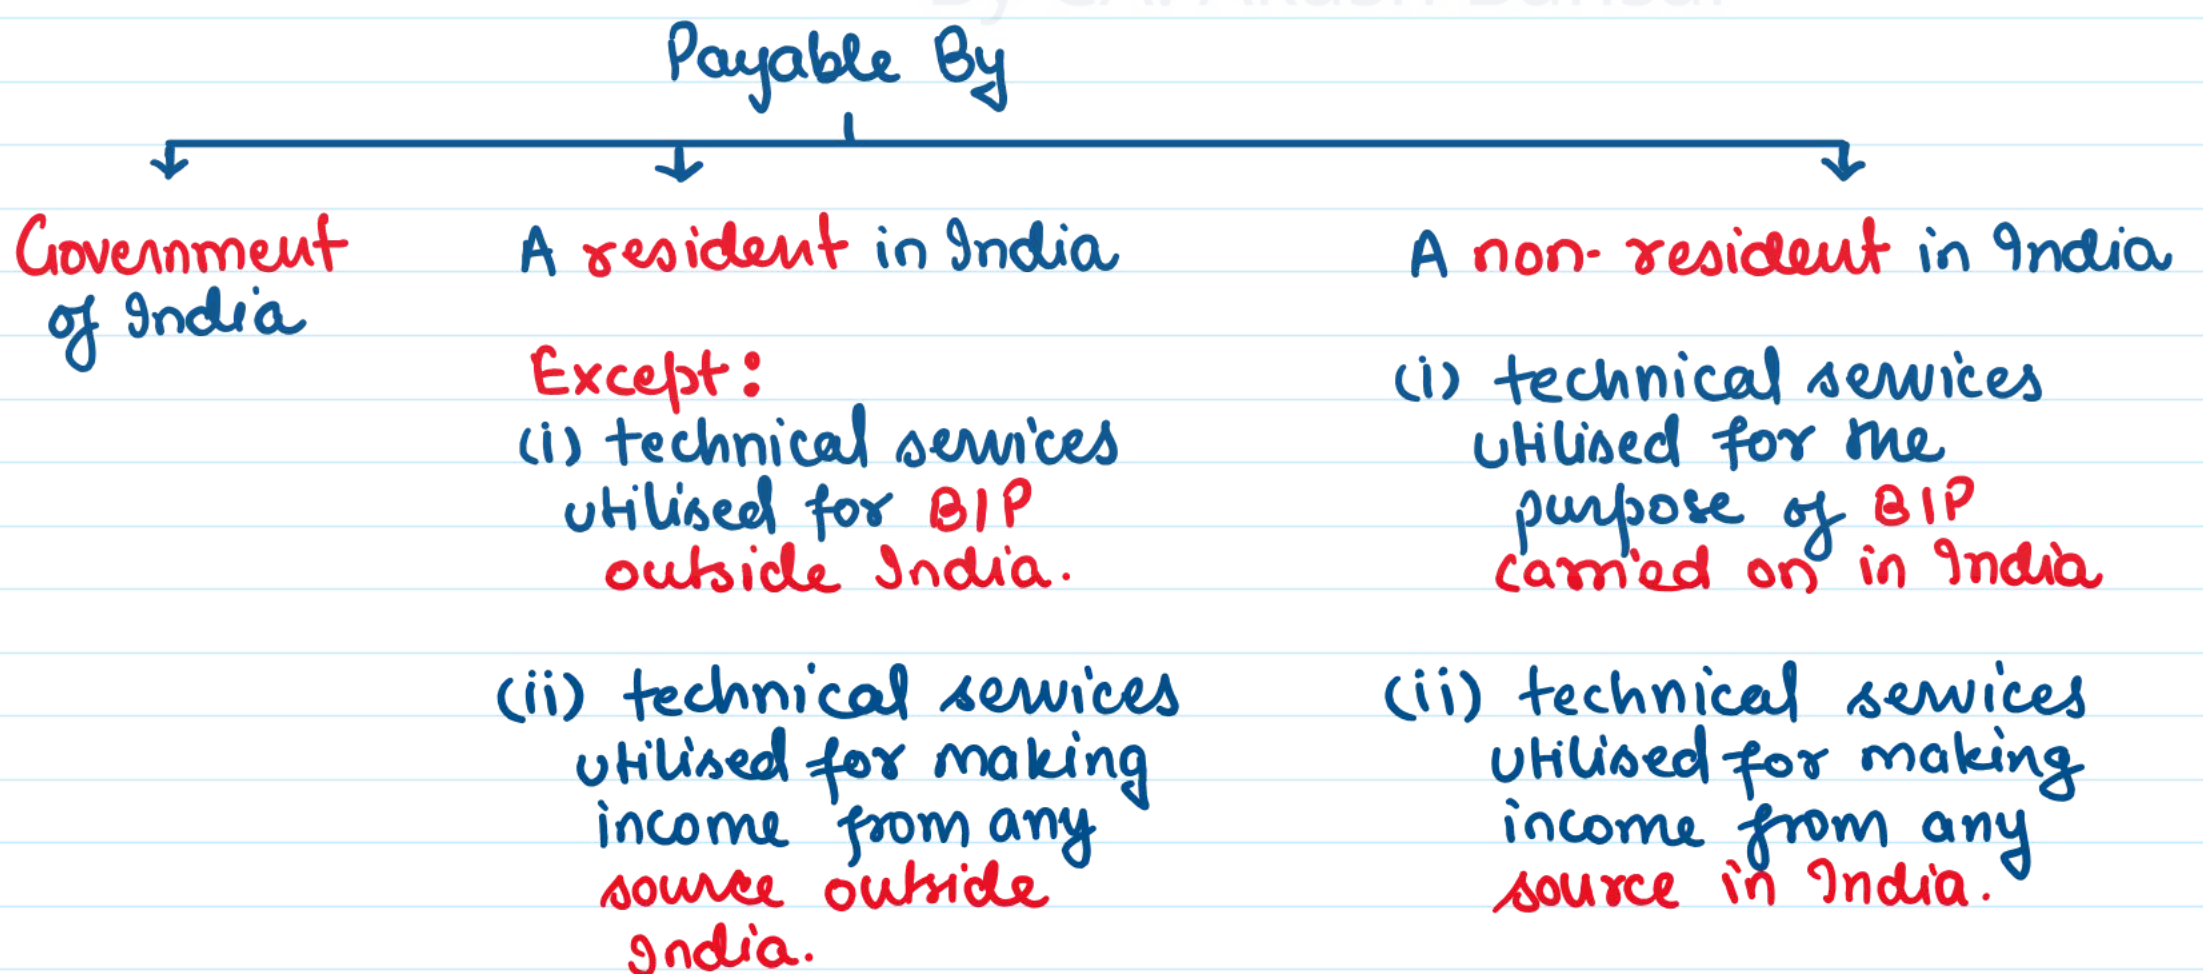 Payable By
Government
of India
A resident in India
Except:
(i) technical services
utilised for BIP
outside India.
(ii) technical services
utilised for making
income from any
source outside
India.
A non-resident in India
(i) technical services
utilised for the
purpose of BIP
carried on in India
(ii) technical services
utilised for making
income from any
source in India.